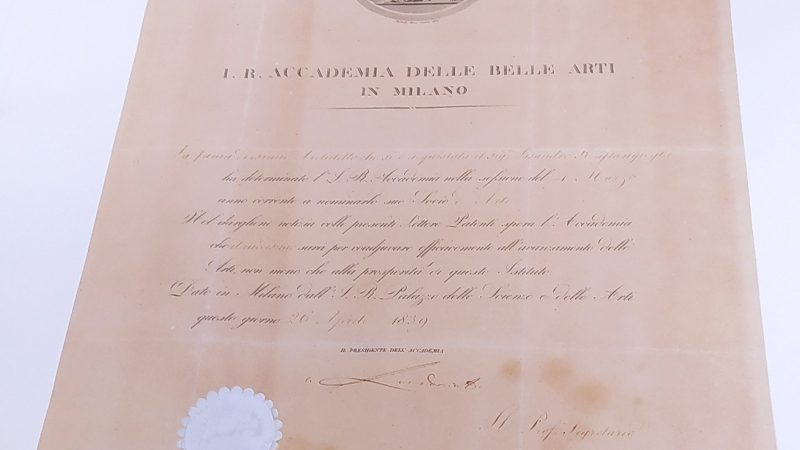 I. R. ACCADEMIA DELLE BELLE ARTI
IN MILANO
La fama di Architetto che si è acquistata il Sig.
ha determinato l'I. R. Accademia nella sessione del Marzo
anno corrente a nominarlo suo Socio d'Arte
Nel dargliene notizia colle presenti Lettere Patenti spera l'Accademia
che sarà per coadjuvare efficacemente all'avanzamento delle
Arti, non meno che alla prosperità di questo Istituto.
Dato in Milano dall'I. R. Palazzo delle Scienze e delle Arti
questo giorno 26 Aprile 1839
IL PRESIDENTE DELL'ACCADEMIA
Il Prof. Segretario